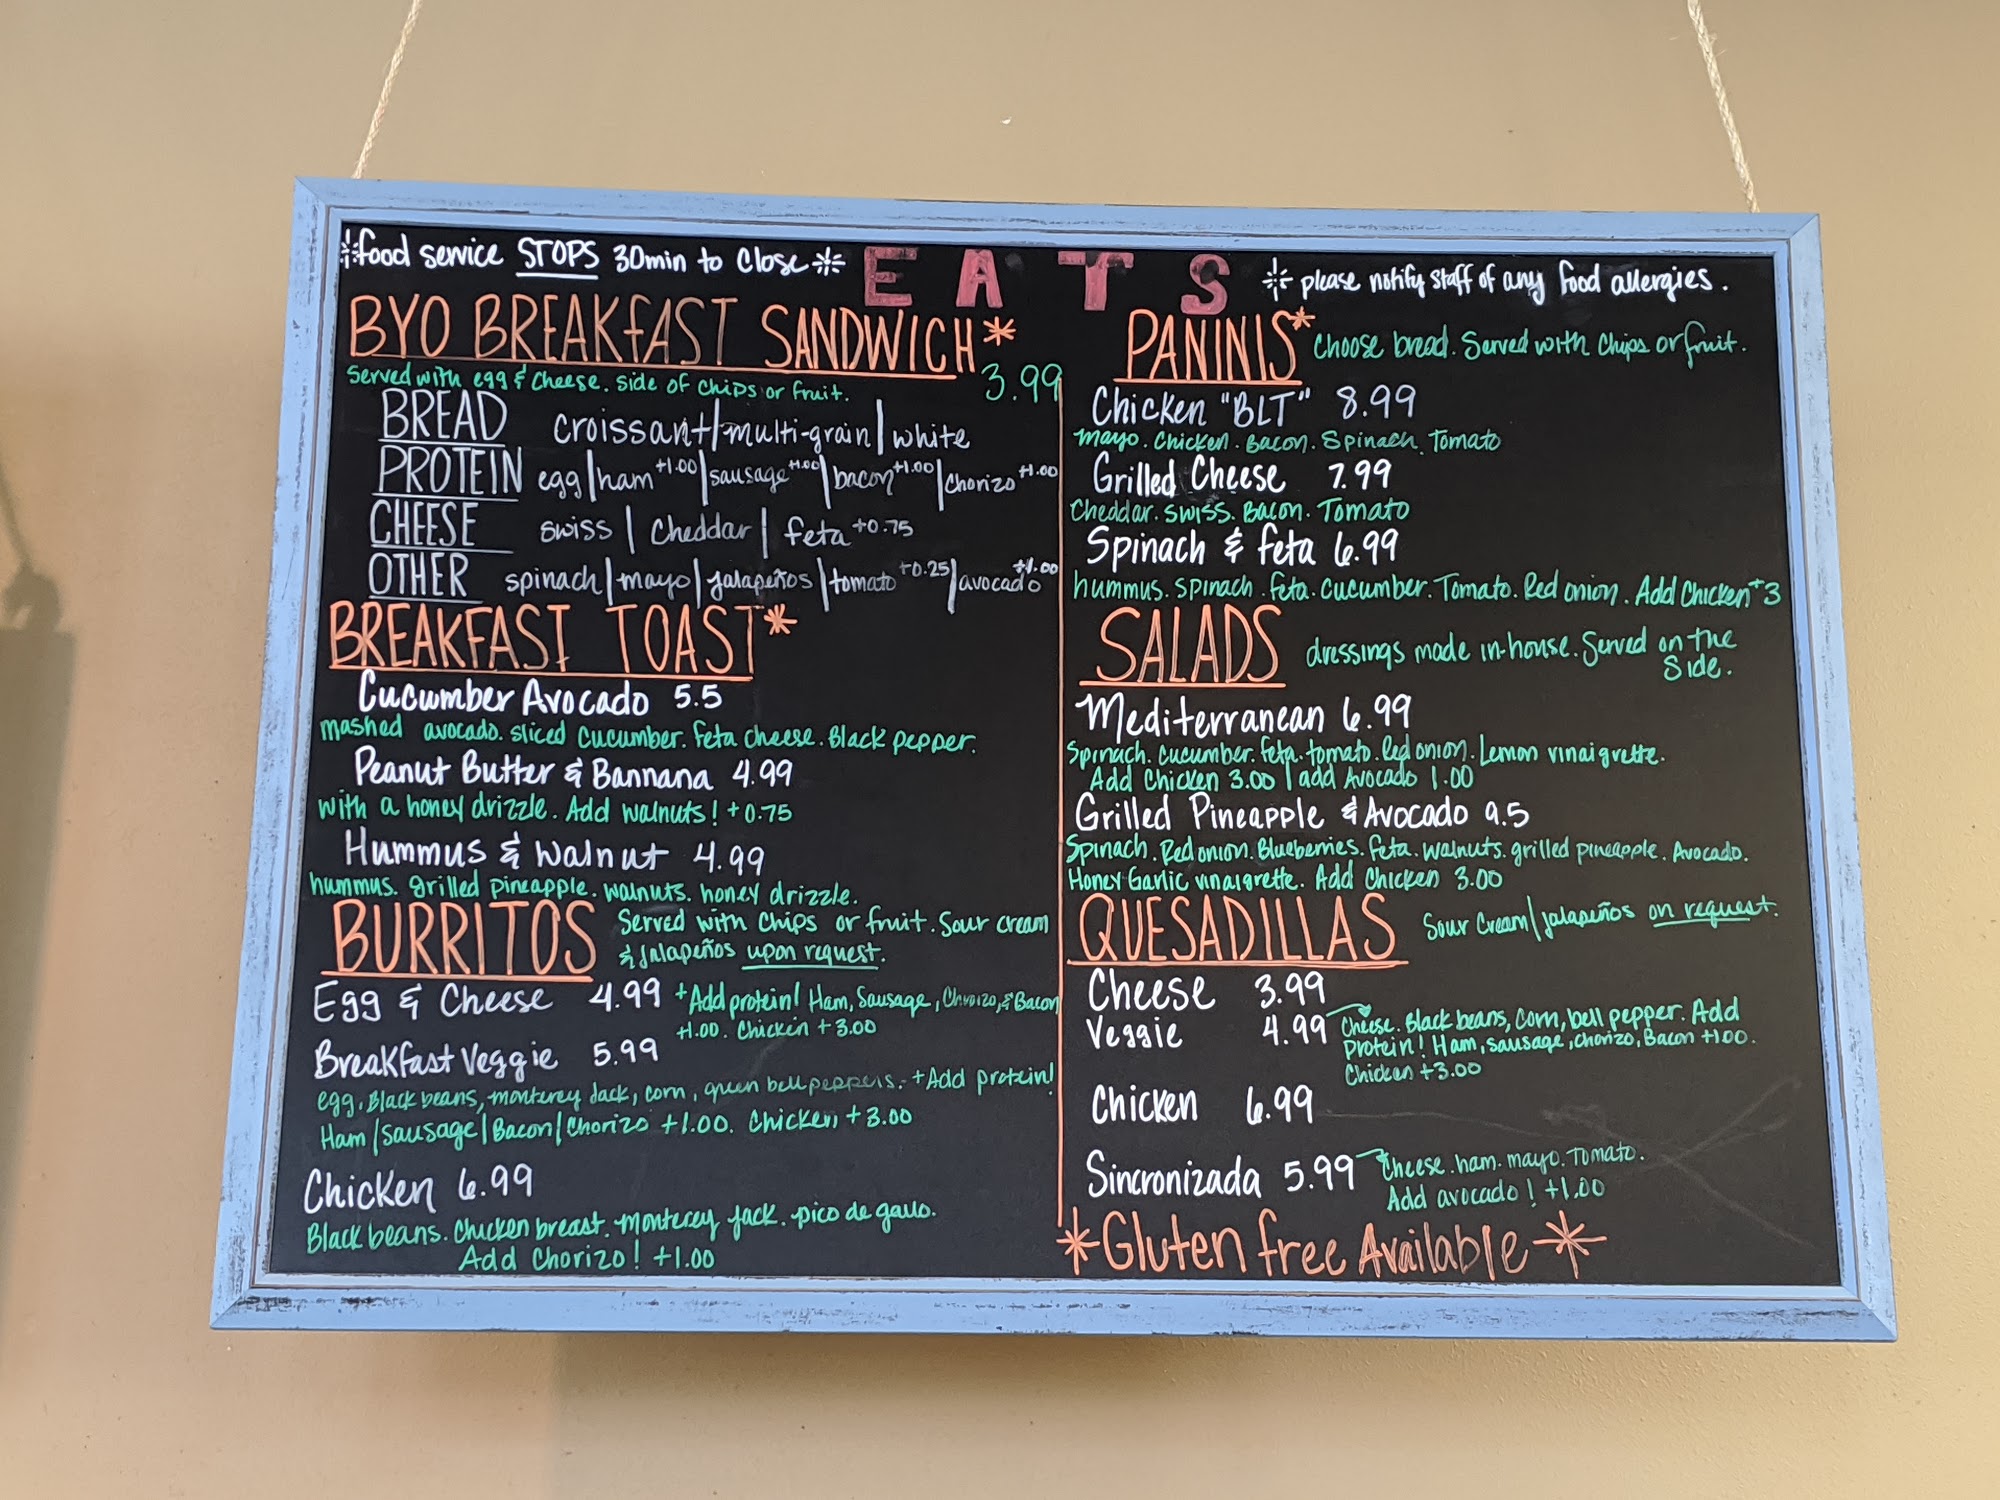 food service STOPS 30min to close
EATS
please notify staff of any food allergies.
BYO BREAKFAST SANDWICH*
3.99
Served with egg & cheese. side of chips or fruit.
BREAD croissant | multi-grain | white
PROTEIN egg | ham +1.00 | sausage +1.00 | bacon +1.00 | chorizo +1.00
CHEESE swiss | cheddar | feta +0.75
OTHER spinach | mayo | jalapeños | tomato +0.25 | avocado +1.00
BREAKFAST TOAST*
Cucumber Avocado 5.5
mashed avocado. sliced cucumber. feta cheese. Black pepper.
Peanut Butter & Bannana 4.99
with a honey drizzle. Add walnuts! +0.75
Hummus & Walnut 4.99
hummus. grilled pineapple. walnuts. honey drizzle.
BURRITOS Served with chips or fruit. Sour cream
& jalapeños upon request.
Egg & Cheese 4.99 +Add protein! Ham, Sausage, Chorizo, & Bacon
+1.00. Chicken +3.00
Breakfast Veggie 5.99
egg, Black beans, monterey Jack, corn, green bell peppers. +Add protein!
Ham/sausage/Bacon/Chorizo +1.00. Chicken +3.00
Chicken 6.99
Black beans. Chicken breast. monterey jack. pico de gallo.
Add Chorizo! +1.00
PANINIS* Choose bread. Served with chips or fruit.
Chicken "BLT" 8.99
mayo. Chicken. Bacon. Spinach. Tomato
Grilled Cheese 7.99
Cheddar. Swiss. Bacon. Tomato
Spinach & feta 6.99
hummus. spinach. feta. cucumber. Tomato. Red onion. Add Chicken +3
SALADS dressings made in-house. Served on the
Side.
Mediterranean 6.99
Spinach. cucumber. feta. tomato. Red onion. Lemon vinaigrette.
Add Chicken 3.00 | add Avocado 1.00
Grilled Pineapple & Avocado 9.5
Spinach. Red onion. Blueberries. feta. walnuts. grilled pineapple. Avocado.
Honey Garlic vinaigrette. Add Chicken 3.00
QUESADILLAS Sour Cream/jalapeños on request.
Cheese 3.99
Veggie 4.99 Cheese. Black beans, corn, bell pepper. Add
Protein! Ham, sausage, chorizo, Bacon +1.00.
Chicken +3.00
Chicken 6.99
Sincronizada 5.99 Cheese. ham. mayo. Tomato.
Add avocado! +1.00
*Gluten free Available*